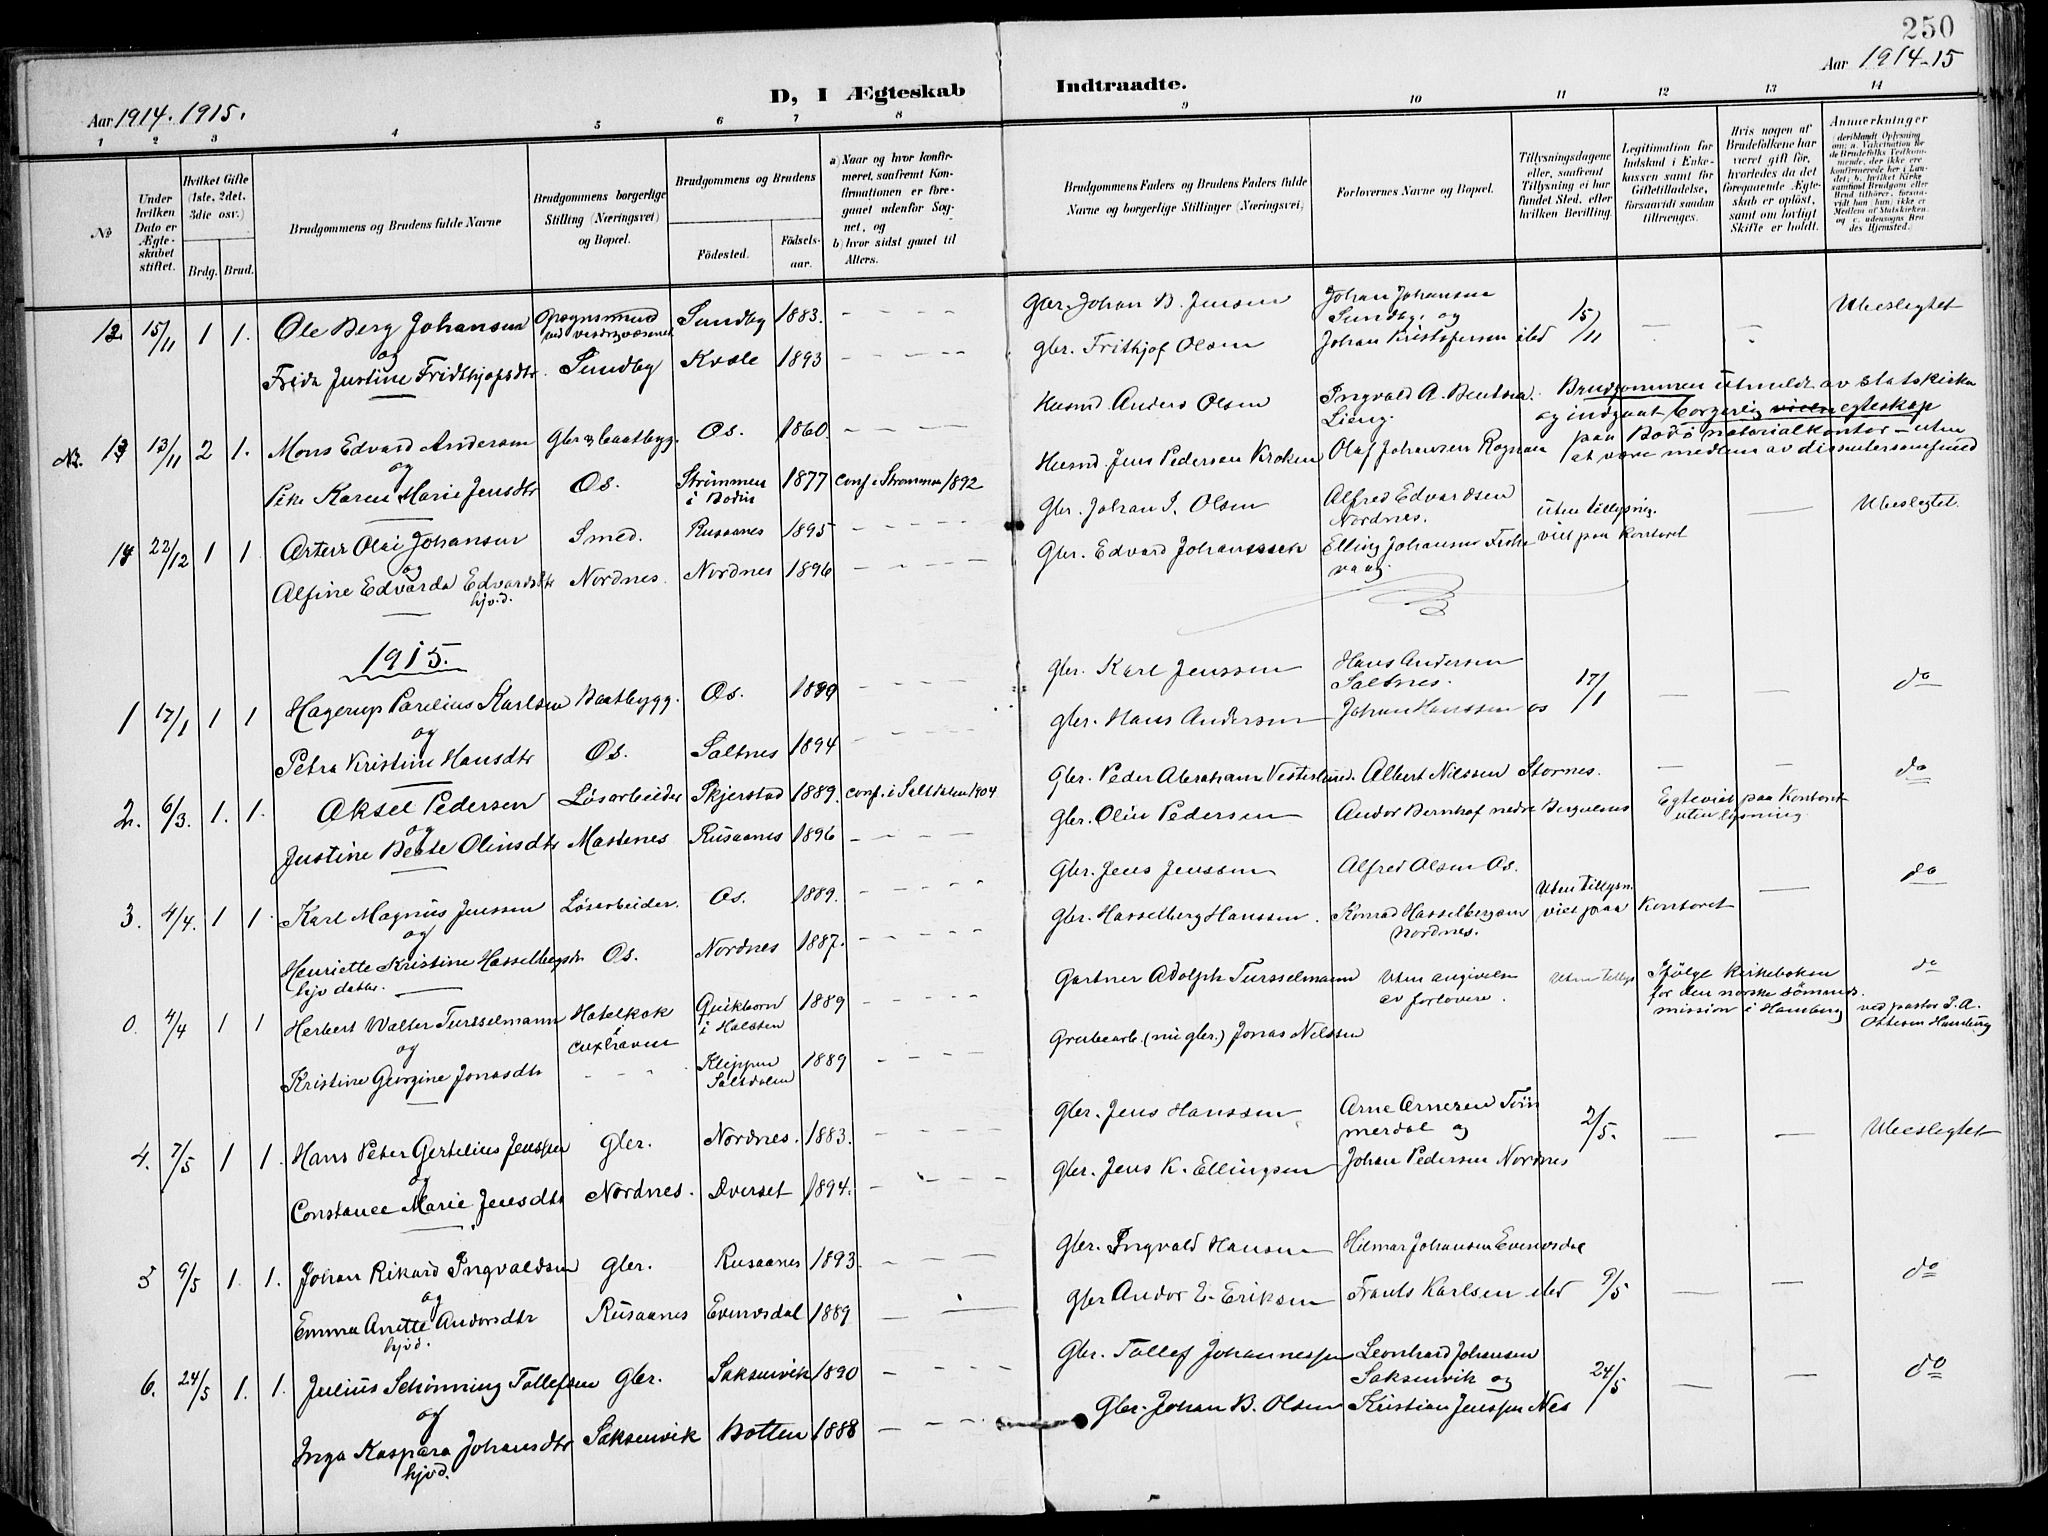 250
Aar 1914-15
D, I Ægteskab Indtraadte.
Aar 1914. 1915.
1 2 3 4 5 6 7 8 9 10 11 12 13 14
No
Under hvilken Dato er Ægteskabet stiftet.
Hvilket Gifte (1ste, 2det, 3die osv.)
Brdg. Brud.
Brudgommens og Brudens fulde Navne
Brudgommens borgerlige Stilling (Næringsvei) og Bopæl.
Brudgommens og Brudens
Födested.
Födsels-aar.
a) Naar og hvor konfirmeret, saafremt Konfirmationen er foregaaet udenfor Sognet, og
b) hvor sidst gaaet til Alters.
Brudgommens Faders og Brudens Faders fulde Navne og borgerlige Stillinger (Næringsvei)
Forlovernes Navne og Bopæl.
Tillysningsdagene eller, saafremt Tillysning ei har fundet Sted, efter hvilken Bevilling.
Legitimation for Indskud i Enkekassen samt for Giftetilladelse, forsaavidt saadan tiltrænges.
Hvis nogen af Brudefolkene har været gift før, hvorledes da det foregaaende Ægteskab er opløst, samt om lovligt Skifte er holdt.
Anmerkninger
12 15/11 1 1. Ole Berg Johansen Sundby 1883. Gbr. Johan B. Jensen Johan Johansen Sundby og 15/11 Ubeslegtet
og
Frida Justine Fridthjofsdtr. Sundby Kvæle 1893 gbr. Frithjof Olsen Johan Kristofersen ibd
Nr. 13 13/11 2 1. Mons Edvard Andersen Gbr & baatbygg. Os. 1860. Husmd. Anders Olsen Ingvald A. Bentsen Lieng. Brudgommen utmeldt av statskirken
og indgaat borgerlig egteskap
paa Bodö notarialkontor - uten
at være medlem av dissentersamfund
og
Pike Karen Marie Jensdtr Os. Strömmen i Bodin 1877 conf. i Strömmen 1892 Husmd. Jens Pedersen Kroken Olaf Johansen Rognan
14 22/12 1 1 Olai Johansen Smed. Rusaanes 1895 Gbr. Johan I. Olsen Alfred Edvardsen Nordnes. uten tillysning. Ubeslegtet.
og
Alfine Edvarda Edvardsdtr hjvd. Nordnes. Nordnes 1896 Gbr. Edvard Johanssen Elling Johansen viet paa Kontoret
1915.
1 17/1 1 1 Hagerup Parelius Karlsen Baatbygg. Os. 1889 Gbr. Karl Jenssen Hans Andersen Saltnes. 17/1 do
og
Petra Kristine Hansdtr Os. Saltnes 1894 gbr. Hans Andersen Johan Hanssen os
2. 6/3. 1. 1. Aksel Pedersen Lösarbeider Skjerstad 1889. conf. i Saltdalen 1904 Gbr. Peder Abraham Vesterlund. Albert Nilssen Stornes. do
og
Justine Beate Olinsdtr Mastenes Rusaanes 1896 Gbr. Olin Pedersen Andor Bernhof nedre Bergulnes Egteviet paa Kontoret uten lysning.
3. 4/4. 1 1. Karl Magnus Jenssen Lösarbeider. Os. 1889. Gbr. Jens Jenssen Alfred Olsen Os. Uten tillysn. do
og
Henriette Kristine Hasselbergsdr. hjvdatter. Os. Nordnes 1887. Gbr. Hasselberg Hanssen. Konrad Hasselbergsen Nordnes. viet paa Kontoret
0. 4/4 1 1 Herbert Walter Tursselmann Hotelkok i Cuxhaven Quikborn i Holsten 1889 Gartner Adolph Tursselmann Uten angivelse av forlovere. Uten tillys Ifölge kirkeboken for den norske sömandsmission i Hamburg do ved pastor I. A. Ottesen Hamburg
og
Kristine Georgine Jonasdtr Kleppen Saltdalen 1889 Grubearb. (nu gbr.) Jonas Nilssen
4. 7/5 1 1. Hans Peter Gertelius Jenssen Gbr. Nordnes. 1883. Gbr. Jens Hanssen Arne Arnesen Tömmerdal og 2/5. Ubeslegtet
og
Constance Marie Jensdtr Nordnes. Dverset 1894. Gbr. Jens K. Ellingsen Johan Pedersen Nordnes
5 9/5 1. 1. Johan Rikard Ingvaldsen Gbr. Rusaanes 1893. Gbr. Ingvald Hansen Hilmar Johansen Evensdal do
og
Emma Anette Andorsdtr hjvd. Rusaanes Evensdal 1889 Gbr Andor E. Eriksen Frants Karlsen ibd 9/5
6. 24/5 1. 1. Julius Schönning Tollefsen Gbr. Saksenvik 1890 Gbr. Tollef Johannessen Leonhard Johansen Saksenvik og 24/5 do
og
Inga Kaspara Johansdtr hjvd. Saksenvik Botten 1888 Gbr. Johan B. Olsen Kristian Jenssen Nes